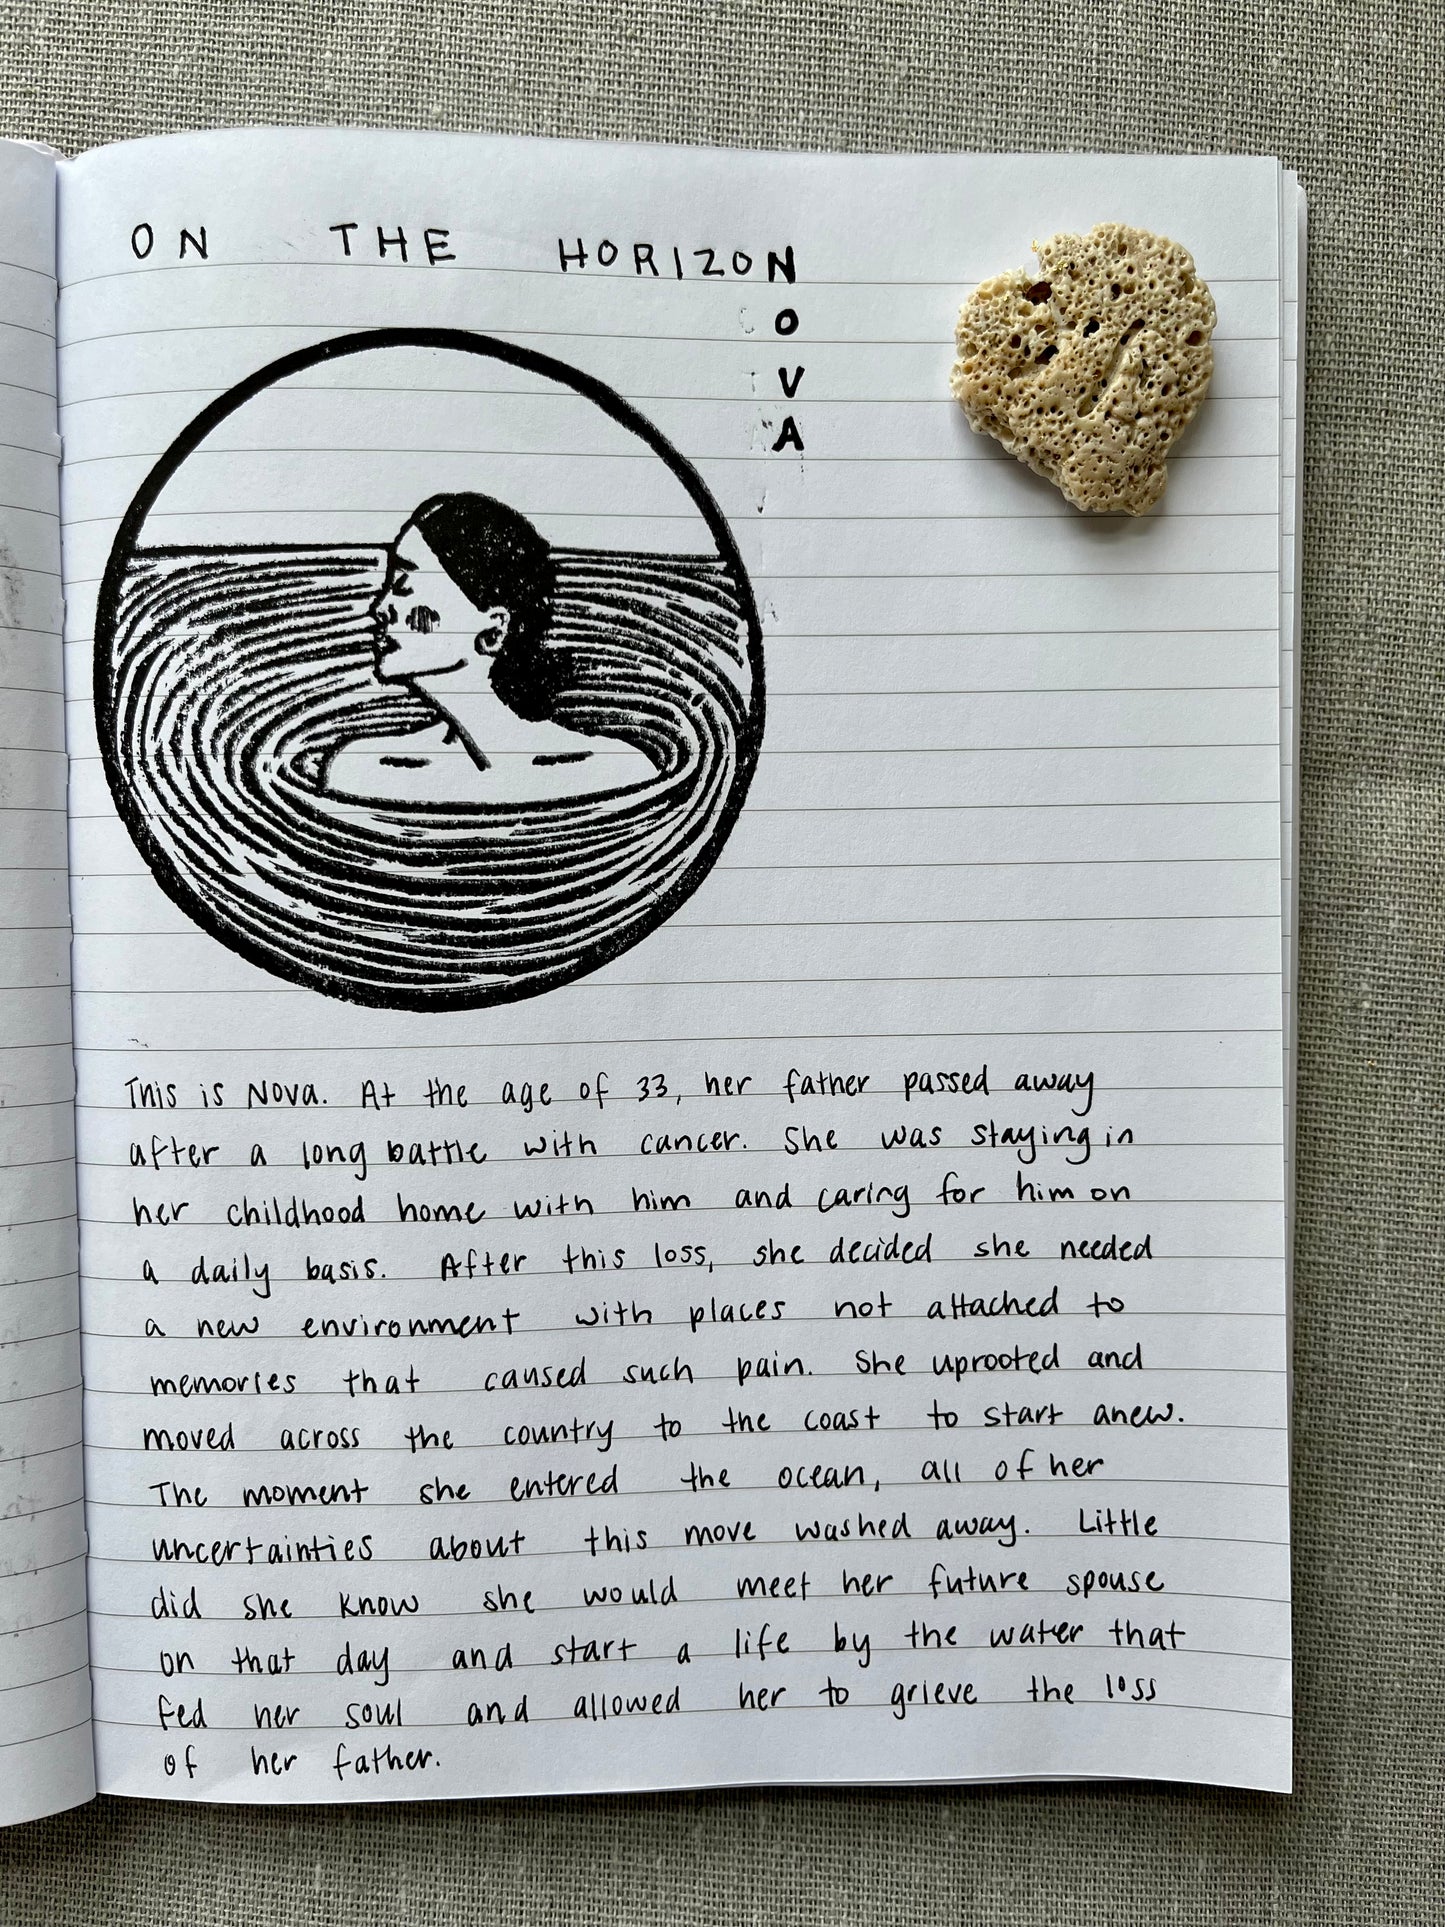 ON THE HORIZON
O
V
A
This is Nova. At the age of 33, her father passed away
after a long battle with cancer. She was staying in
her childhood home with him and caring for him on
a daily basis. After this loss, she decided she needed
a new environment with places not attached to
memories that caused such pain. She uprooted and
moved across the country to the coast to start anew.
The moment she entered the ocean, all of her
uncertainties about this move washed away. Little
did she know she would meet her future spouse
on that day and start a life by the water that
fed her soul and allowed her to grieve the loss
of her father.